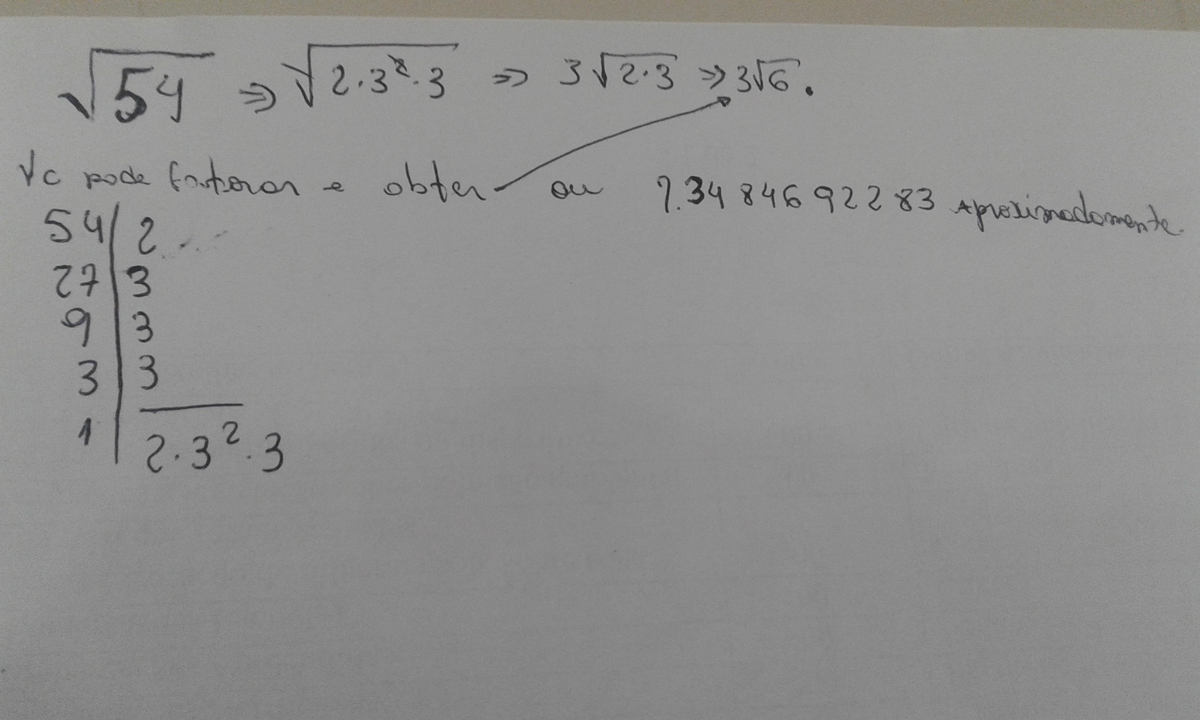 √54 ⇒ √2·3²·3 ⇒ 3√2·3 ⇒ 3√6.
Vc pode fatorar e obter ou 7.3484692283 Aproximadamente.
54 | 2
27 | 3
9 | 3
3 | 3
1 | 2·3²·3